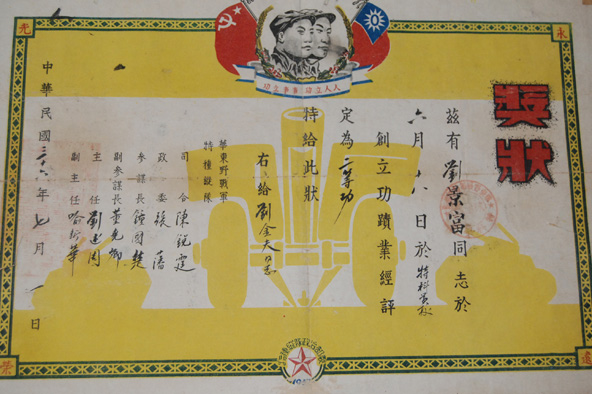 永
光
人人立功 事事立功
獎狀
茲有劉景富同志於
六月十八日於特科學校
創立功蹟業經評
定為二等功
特給此狀
右給劉金夫同志
華東野戰軍
特種縱隊
司令陳銳霆
政委張藩
參謀長
副參謀長
主任劉述周
副主任
中華民國三十六年七月一日
榮